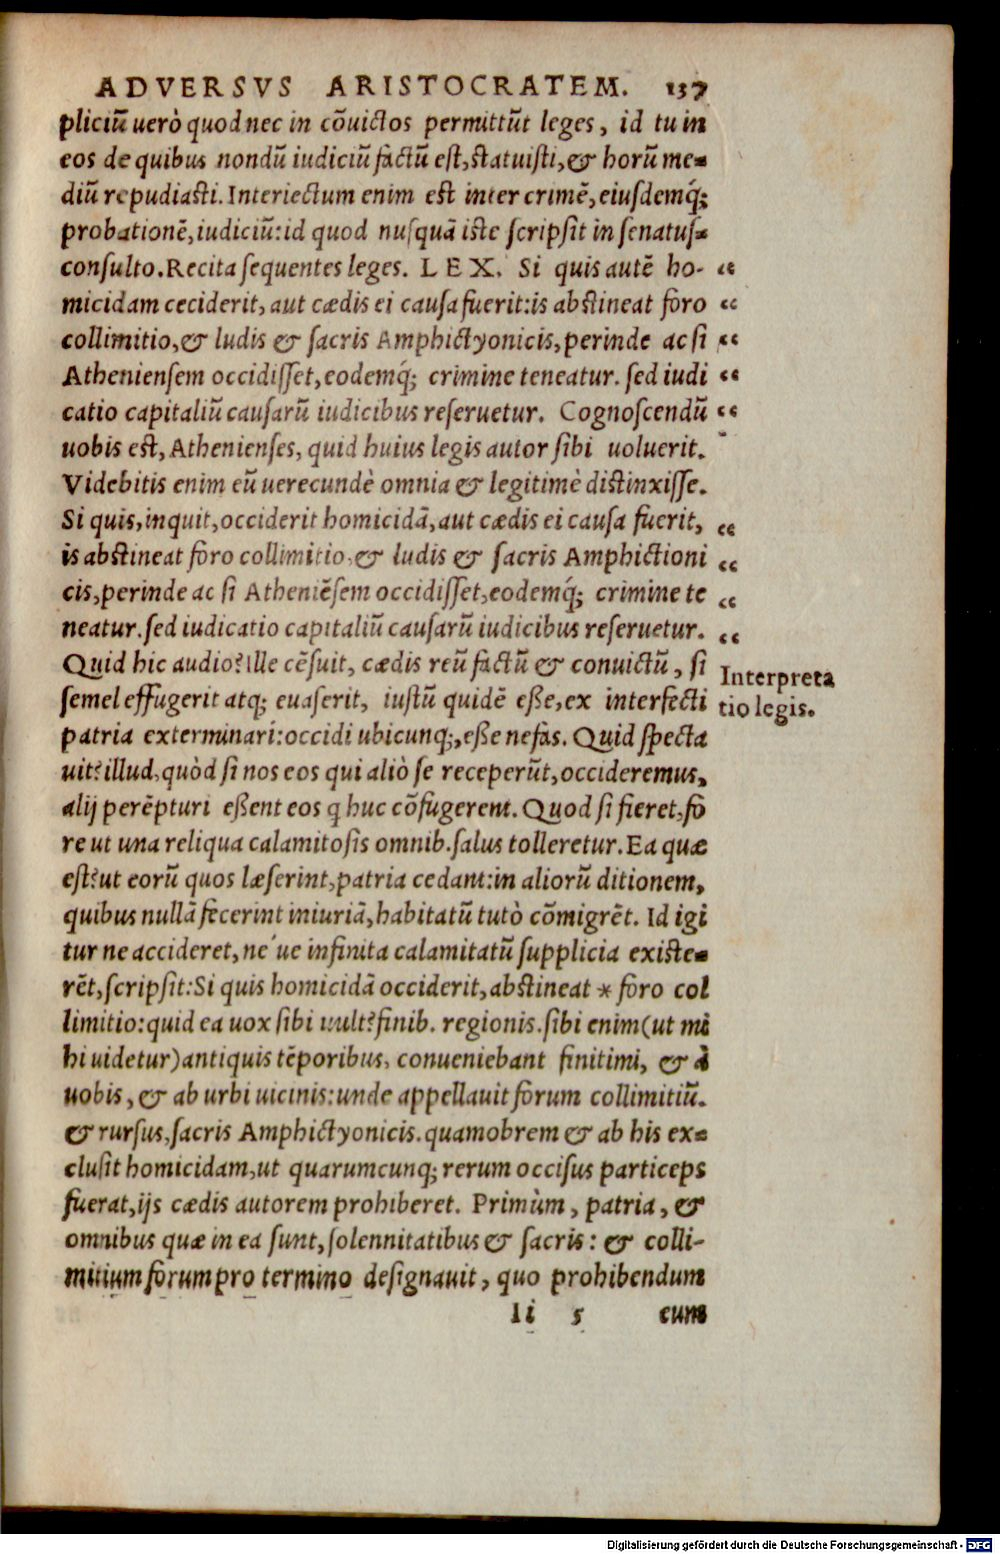 ADVERSVS ARISTOCRATEM. 137
pliciũ uerò quod nec in cõuictos permittũt leges, id tu in
eos de quibus nondũ iudiciũ factũ est, statuisti, & horũ me-
diũ repudiasti. Interiectum enim est inter crimẽ, eiusdemq́;
probationẽ, iudiciũ: id quod nusquã iste scripsit in senatus-
consulto. Recita sequentes leges. LEX. Si quis autẽ ho- “
micidam ceciderit, aut cædis ei causa fuerit: is abstineat foro “
collimitio, & ludis & sacris Amphictyonicis, perinde ac si “
Atheniensem occidisset, eodemq́; crimine teneatur. sed iudi “
catio capitaliũ causarũ iudicibus reseruetur. Cognoscendũ “
uobis est, Athenienses, quid huius legis autor sibi uoluerit.
Videbitis enim eũ uerecundè omnia & legitimè distinxisse.
Si quis, inquit, occiderit homicidã, aut cædis ei causa fuerit, “
is abstineat foro collimitio, & ludis & sacris Amphictioni “
cis, perinde ac si Atheniẽsem occidisset, eodemq́; crimine te “
neatur. sed iudicatio capitaliũ causarũ iudicibus reseruetur. “
Quid hic audio? Ille cẽsuit, cædis reũ factũ & conuictũ, si
semel effugerit atq; euaserit, iustũ quidẽ esse, ex interfecti
patria exterminari: occidi ubicunq;, esse nefas. Quid specta
uit? illud, quòd si nos eos qui aliò se receperũt, occideremus,
alij perẽpturi essent eos q huc cõfugerent. Quod si fieret, fo
re ut una reliqua calamitosis omnib. salus tolleretur. Ea quæ
est? ut eorũ quos læserint, patria cedant: in aliorũ ditionem,
quibus nullã fecerint iniuriã, habitatũ tutò cõmigrẽt. Id igi
tur ne accideret, ne ́ue infinita calamitatũ supplicia existe-
rẽt, scripsit: Si quis homicidã occiderit, abstineat * foro col
limitio: quid ea uox sibi uult? finib. regionis. sibi enim (ut mi
hi uidetur) antiquis tẽporibus, conueniebant finitimi, & à
uobis, & ab urbi uicinis: unde appellauit forum collimitiũ.
& rursus, sacris Amphictyonicis. quamobrem & ab his ex-
clusit homicidam, ut quarumcunq; rerum occisus particeps
fuerat, ijs cædis autorem prohiberet. Primùm, patria, &
omnibus quæ in ea sunt, solennitatibus & sacris: & colli-
mitium forum pro termino designauit, quo prohibendum
Ii 5 cum
Interpreta
tio legis.
Digitalisierung gefördert durch die Deutsche Forschungsgemeinschaft - DFG